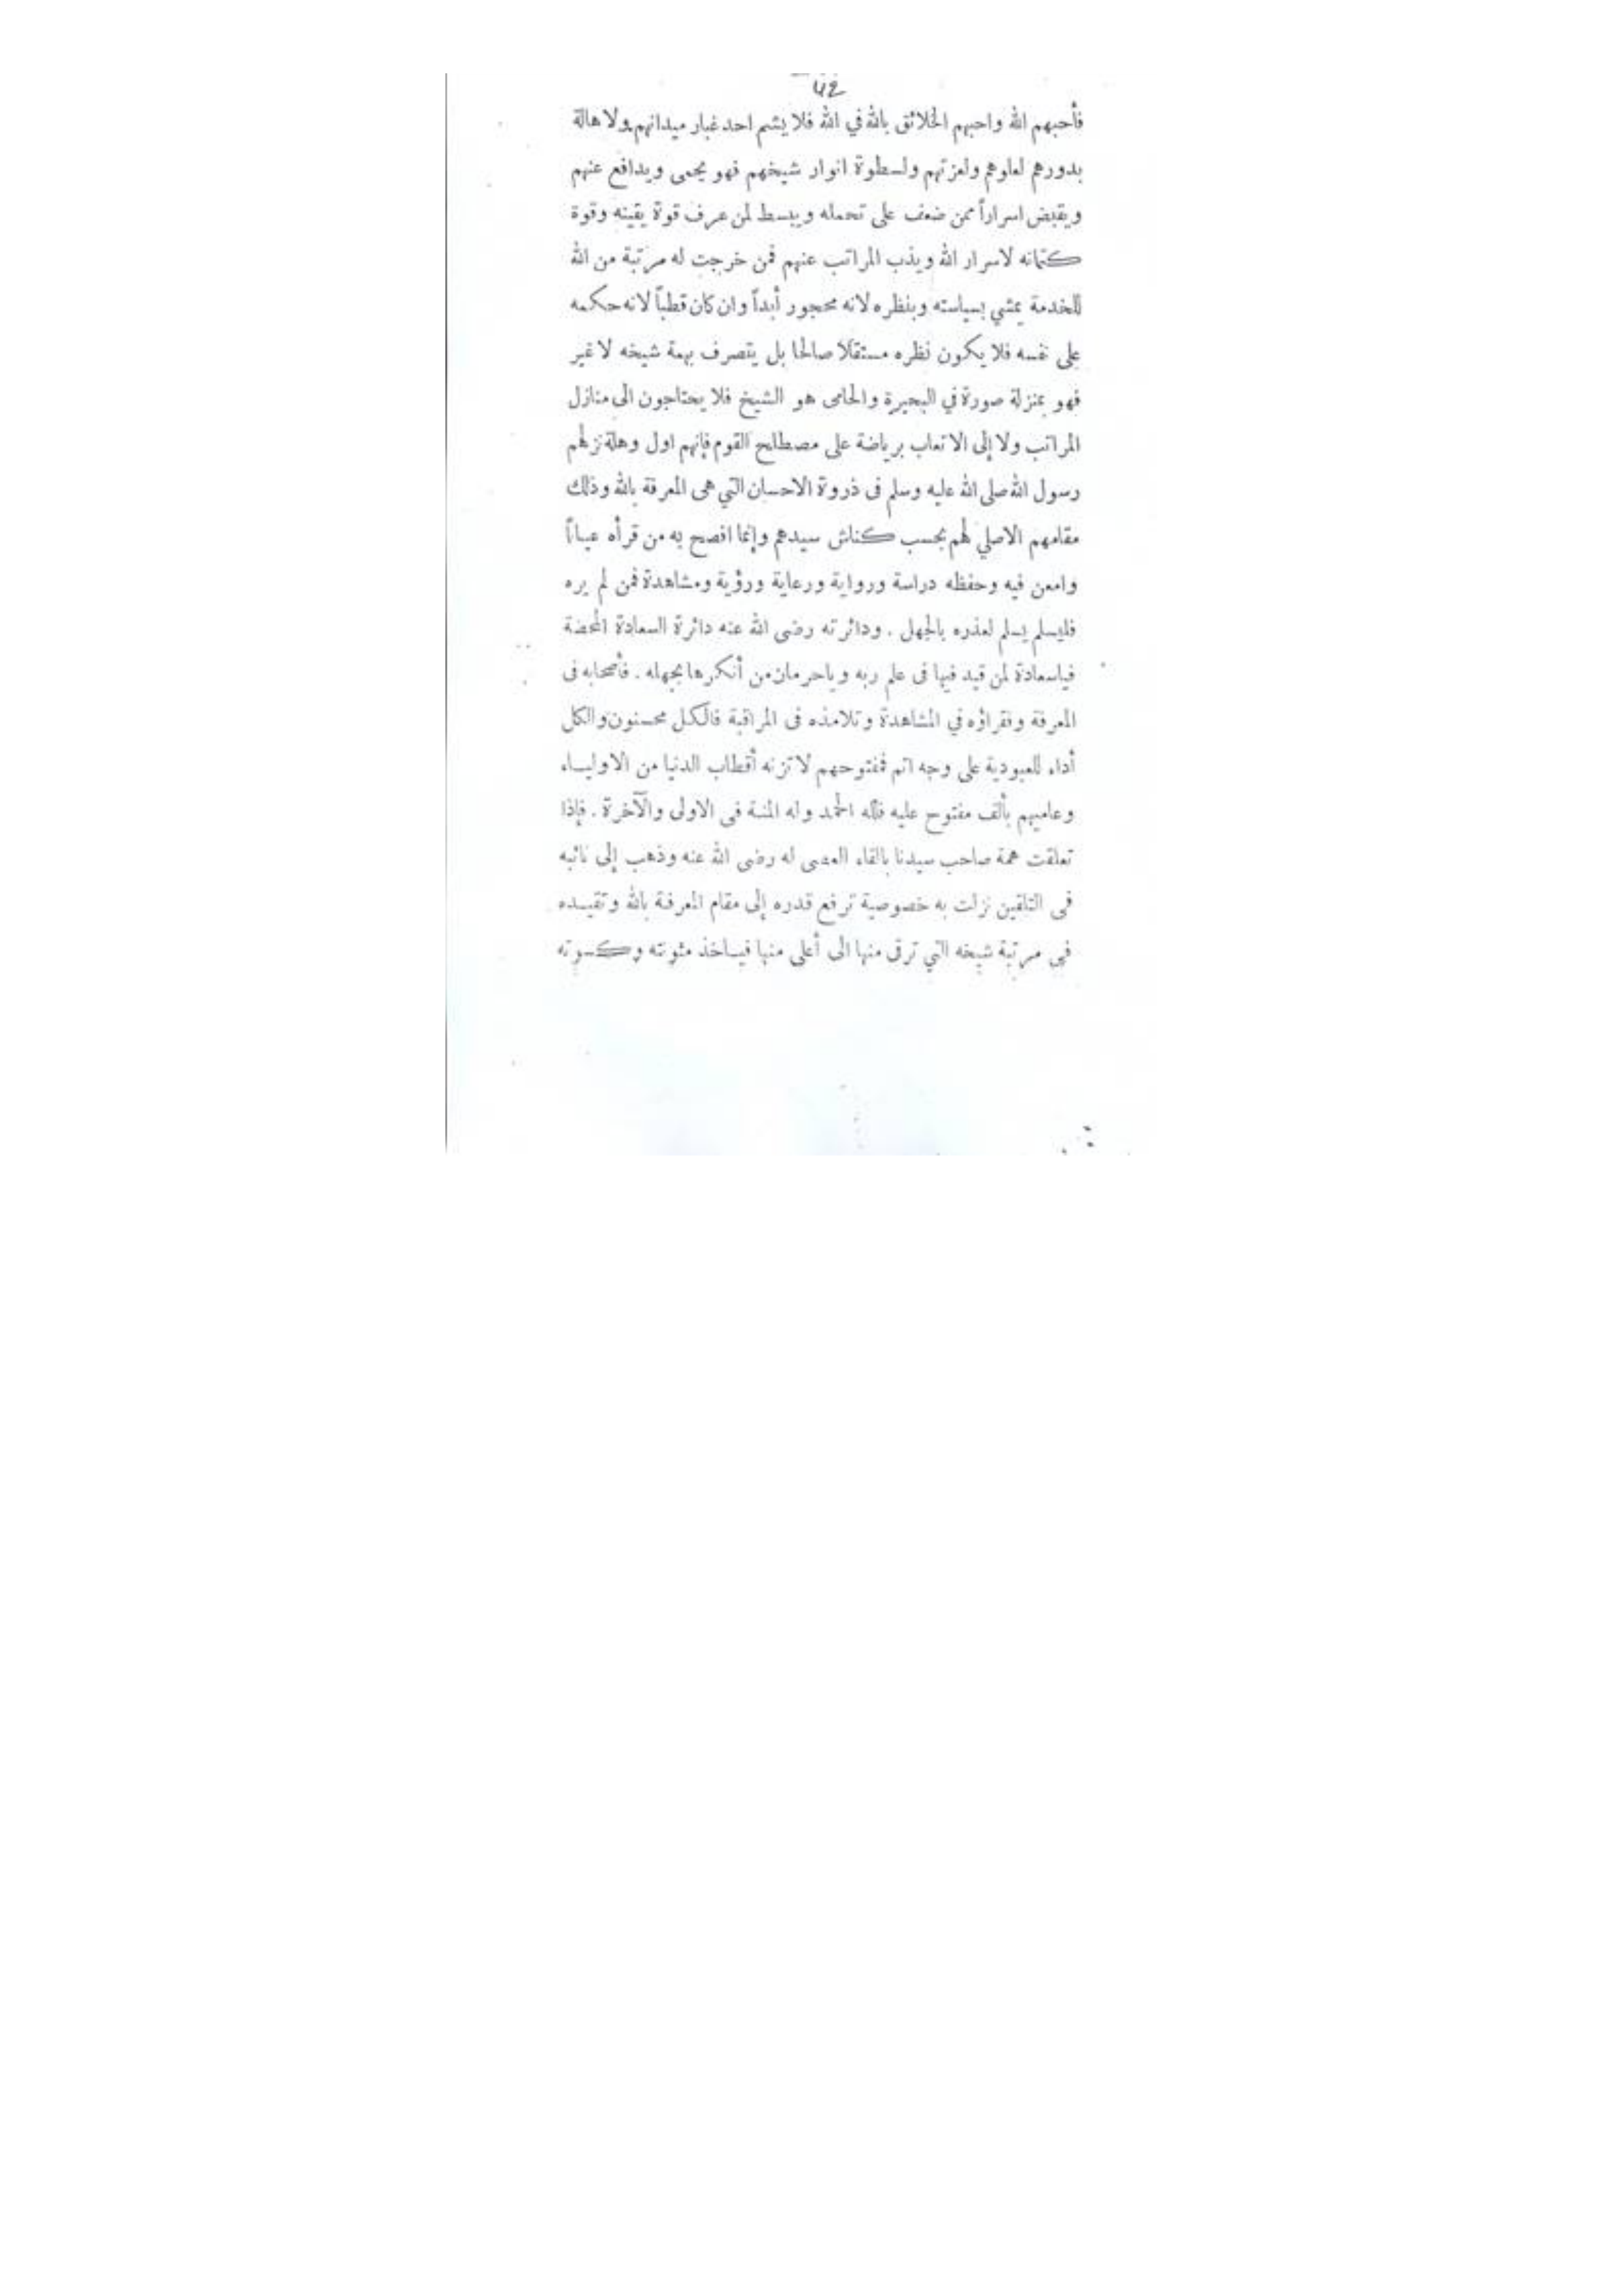 42
فأحبهم الله واحبهم الخلائق بالله في الله فلا يشم احد غبار ميدانهم ولا هالة
بدورهم لعلوهم ولعزتهم ولسطوة انوار شيخهم فهو يحمى ويدافع عنهم
ويقبض اسراراً ممن ضعف على تحمله ويبسط لمن عرف قوة يقينه وقوة
كتمانه لاسرار الله ويذب المراتب عنهم فمن خرجت له مرتبة من الله
للخدمة يمشي بسياسته وبنظره لانه محجور أبداً وان كان قطباً لانه حكمه
على نفسه فلا يكون نظره مستقلا صالحا بل يتصرف بهمة شيخه لا غير
فهو بمنزلة صورة في البحيرة والحامى هو الشيخ فلا يحتاجون الى منازل
المراتب ولا إلى الاتعاب برياضة على مصطلح القوم فإنهم اول وهلة نزلهم
رسول الله صلى الله عليه وسلم فى ذروة الاحسان التي هى المعرفة بالله وذلك
مقامهم الاصلي لهم بحسب كناش سيدهم وإنما افصح به من قرأه عياناً
وامعن فيه وحفظه دراسة ورواية ورعاية ورؤية ومشاهدة فمن لم يره
فليسلم يسلم لعذره بالجهل . ودائرته رضى الله عنه دائرة السعادة المحضة
فياسعادة لمن قيد فيها فى علم ربه وياحرمان من أنكرها بجهله . فأصحابه فى
المعرفة وفقراؤه في المشاهدة وتلامذه فى المراقبة فالكل محسنون والكل
أداء للعبودية على وجه اتم فمفتوحهم لا تزنه أقطاب الدنيا من الاولياء
وعاميهم بألف مفتوح عليه فلله الحمد وله المنة فى الاولى والآخرة . فإذا
تعلقت همة صاحب سيدنا بالقاء العصى له رضى الله عنه وذهب إلى نائبه
فى التلقين نزلت به خصوصية ترفع قدره إلى مقام المعرفة بالله وتقيده
فى مرتبة شيخه التي ترقى منها الى أعلى منها فيأخذ مئونته وكسوته